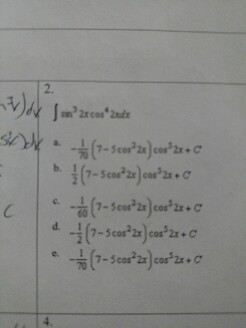 2.
∫ sin³ 2x cos⁴ 2x dx
a. -1/70 (7-5cos²2x) cos⁵2x + C
b. 1/2 (7-5cos²2x) cos⁵2x + C
c. -1/60 (7-5cos²2x) cos⁵2x + C
d. -1/2 (7-5cos²2x) cos⁵2x + C
e. -1/70 (7-5cos²2x) cos⁵2x + C
C
4.